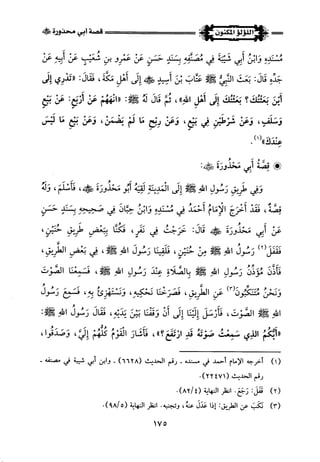 اللؤلؤ المكنون
قصة أبي محذورة ﵁
مُسْنَدِهِ وَابْنُ أَبِي شَيْبَةَ فِي مُصَنَّفِهِ بِسَنَدٍ حَسَنٍ عَنْ عَمْرِو بنِ شُعَيْبٍ عَنْ أَبِيهِ عَنْ
جَدِّهِ قَالَ: بَعَثَ النَّبِيُّ ﷺ عَتَّابَ بْنَ أَسِيدٍ ﵁ إِلَى أَهْلِ مَكَّةَ، فَقَالَ: «تَدْرِي إِلَى
أَيْنَ بَعَثْتُكَ؟ بَعَثْتُكَ إِلَى أَهْلِ اللهِ»، ثُمَّ قَالَ لَهُ ﷺ: «انْهَهُمْ عَنْ أَرْبَعٍ: عَنْ بَيْعٍ
وَسَلَفٍ، وَعَنْ شَرْطَيْنِ فِي بَيْعٍ، وَعَنْ رِبْحِ مَا لَمْ يُضْمَنْ، وَعَنْ بَيْعِ مَا لَيْسَ
عِنْدَكَ»(١).
◉ قِصَّةُ أَبِي مَحْذُورَةَ ﵁:
وَفِي طَرِيقِ رَسُولِ اللهِ ﷺ إِلَى الْمَدِينَةِ لَقِيَهُ أَبُو مَحْذُورَةَ ﵁، فَأَسْلَمَ، وَلَهُ
قِصَّةٌ، فَقَدْ أَخْرَجَ الْإِمَامُ أَحْمَدُ فِي مُسْنَدِهِ وَابْنُ حِبَّانَ فِي صَحِيحِهِ بِسَنَدٍ حَسَنٍ
عَنْ أَبِي مَحْذُورَةَ ﵁ قَالَ: خَرَجْتُ فِي نَفَرٍ، فَكُنَّا بِبَعْضِ طَرِيقِ حُنَيْنٍ،
فَقَفَلَ(٢) رَسُولُ اللهِ ﷺ مِنْ حُنَيْنٍ، فَلَقِيَنَا رَسُولُ اللهِ ﷺ، فِي بَعْضِ الطَّرِيقِ،
فَأَذَّنَ مُؤَذِّنُ رَسُولِ اللهِ ﷺ بِالصَّلَاةِ عِنْدَ رَسُولِ اللهِ ﷺ، فَسَمِعْنَا الصَّوْتَ
وَنَحْنُ مُتَنَكِّبُونَ(٣) عَنِ الطَّرِيقِ، فَصَرَخْنَا نَحْكِيهِ، وَنَسْتَهْزِئُ بِهِ، فَسَمِعَ رَسُولُ
اللهِ ﷺ الصَّوْتَ، فَأَرْسَلَ إِلَيْنَا إِلَى أَنْ وَقَفْنَا بَيْنَ يَدَيْهِ، فَقَالَ رَسُولُ اللهِ ﷺ:
«أَيُّكُمُ الذِي سَمِعْتُ صَوْتَهُ قَدِ ارْتَفَعَ؟»، فَأَشَارَ الْقَوْمُ كُلُّهُمْ إِلَيَّ، وَصَدَقُوا،
(١) أخرجه الإمام أحمد في مسنده - رقم الحديث (٦٦٢٨) - وابن أبي شيبة في مصنفه -
رقم الحديث (٢٢٤٧١).
(٢) قَفَلَ: رَجَعَ. انظر النهاية (٨٢/٤).
(٣) نَكَّبَ عن الطريق: إذا عَدَلَ عنه، وتجنبه. انظر النهاية (٩٨/٥).
١٧٥